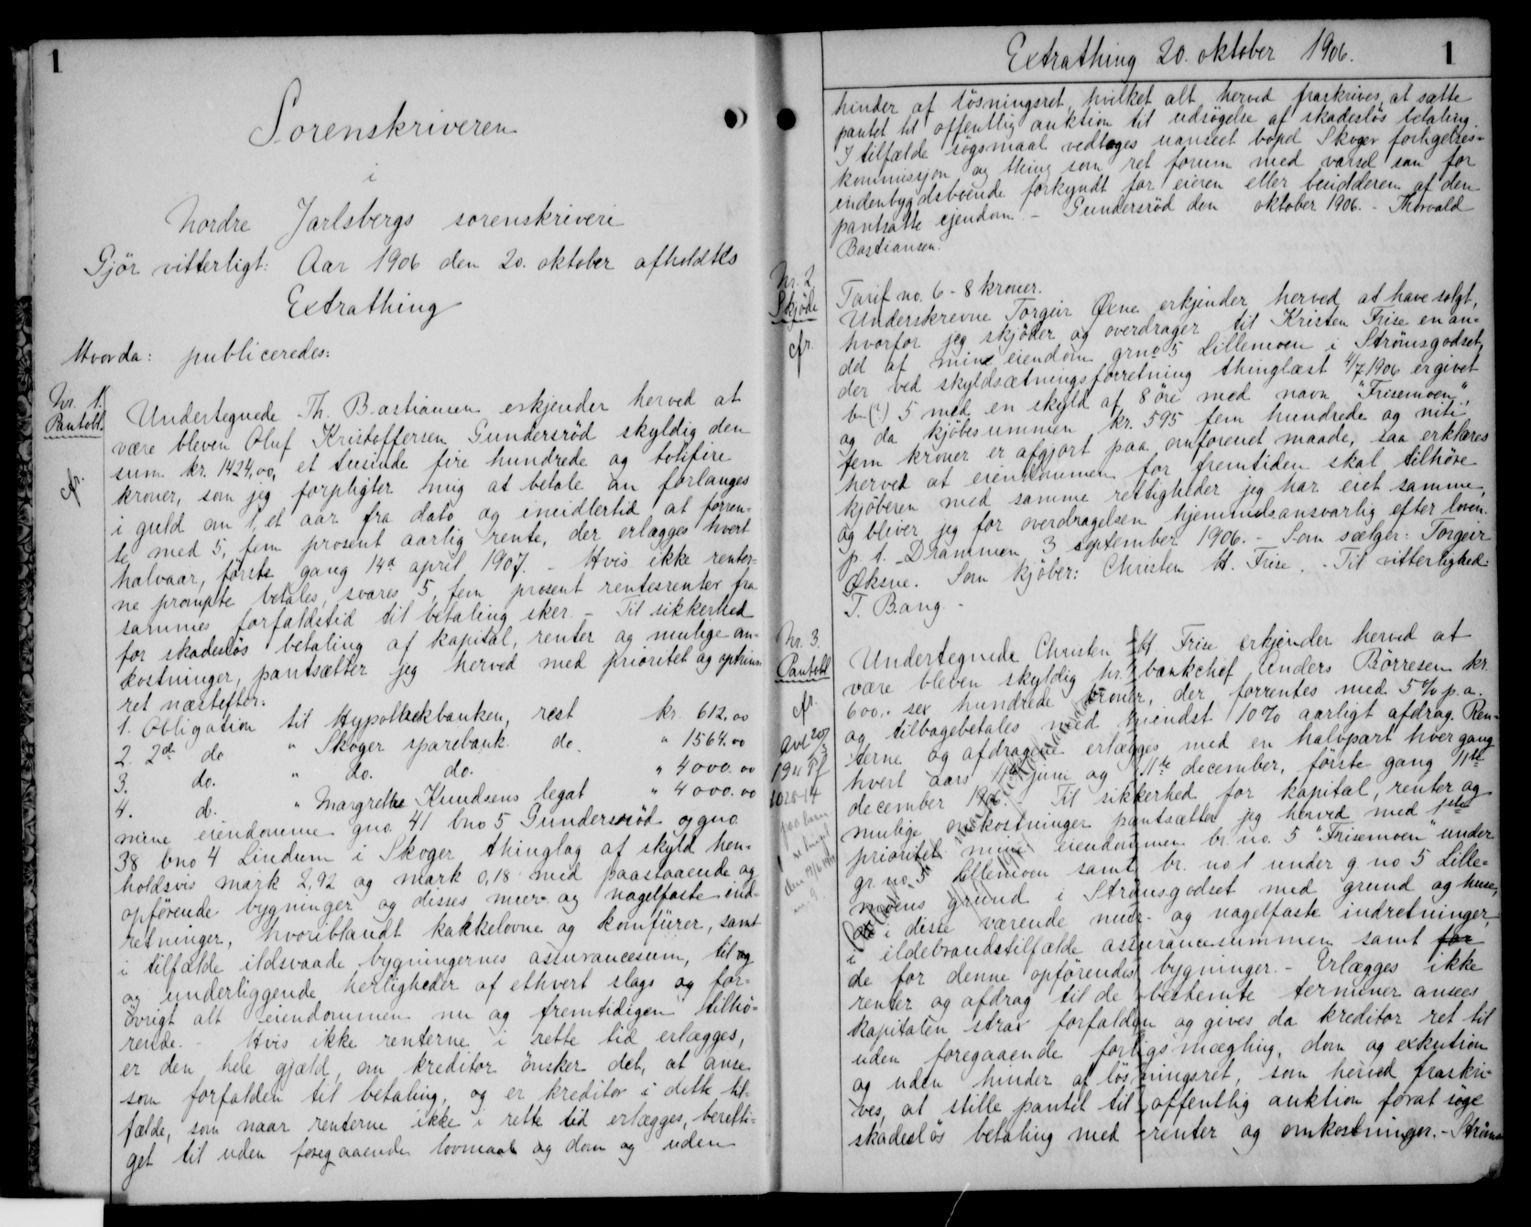 1
Sorenskriveren
i
Nordre Jarlsbergs sorenskriveri
Gjör vitterligt: Aar 1906 den 20. oktober afholdtes
Extrathing
Hvorda: publiceredes:
Nr. 1.
Pantobl.
cfr.
Undertegnede Th. Bastiansen erkjender herved at
være bleven Oluf Kristoffersen Gundersröd skyldig den
sum kr. 1424,00, et tusinde fire hundrede og totifire
kroner, som jeg forpligter mig at betale om forlanges
i guld om 1, et aar fra dato og imidlertid at forren-
te med 5, fem prosent aarlig rente, der erlægges hvert
halvaar, første gang 14de april 1907. - Hvis ikke renter-
ne prompte betales, svares 5, fem prosent rentesrenter fra
sammes forfaldstid til betaling sker. - Til sikkerhed
for skadeslös betaling af kapital, renter og mulige om-
kostninger, pantsætter jeg herved med prioritet og optrins-
ret næstefter:
1. Obligation til Hypothekbanken, rest kr. 612,00
2. 2den do " Skoger sparebank do. " 1564.00
3. do. " do. do. " 4000.00
4. d. " Margrethe Knudsens legat " 4000.00
mine eiendomme gno. 41 bno 5 Gundersröd og gno
38 bno 4 Lindum i Skoger thinglag af skyld hen-
holdsvis mark 2,92 og mark 0,18 med paastaaende og
opförende bygninger og disses mur- og nagelfaste ind-
retninger, hvoriblandt kakkelovne og komfürer, samt
i tilfælde ildsvaade bygningernes assurancesum, til og
og underliggende herligheder af ethvert slags og for-
övrigt alt eiendommen nu og fremtidigen tilhö-
rende. - Hvis ikke renterne i rette tid erlægges,
er den hele gjæld, om kreditor önsker det, at anse
som forfalden til betaling, og er kreditor i dette til-
fælde, som naar renterne ikke i rette tid erlægges, beretti-
get til uden foregaaende lovmaal og dom og uden
Extrathing 20. oktober 1906.
1
hinder af lösningsret, hvilket alt herved fraskrives, at sætte
pantet til offentlig auktion til udsögelse af skadeslös betaling.
I tilfælde sögsmaal vedtages uanseet bopæl Skoger forligelses-
kommissjon og thing som ret forum med varsel som for
indenbygdsboende forkyndt for eieren eller besidderen af den
pantsatte ejendom. - Gundersröd den oktober 1906. - Thorvald
Bastiansen.
Nr. 2.
Skjöde
cfr.
Tarif no. 6 - 8 kroner.
Underskrevne Torgeir Øxne erkjender herved at have solgt,
hvorfor jeg skjöder og overdrager til Kristen Frise en an-
del af mine eiendom grno 5 Lillemoen i Strömsgodset,
der ved skyldsætningsforretning thinglæst 4/7 1906 er givet
bno 5 med en skyld af 8 öre med navn "Frisemoen",
og da kjöbesummen kr. 595 fem hundrede og niti
fem kroner er afgjort paa omforenet maade, saa erklæres
herved at eiendommen for fremtiden skal tilhöre
kjöberen med samme rettigheder jeg har eiet samme,
og bliver jeg for overdragelsen hjemmelsansvarlig efter loven.
p. t. Drammen, 3 september 1906. - Som sælger: Torgeir
Øksne. Som kjöber: Christen H. Frise. - Til vitterlighed:
T. Bang. -
Nr. 3.
Pantobl
cfr.
Undertegnede Christen H. Frise erkjender herved at
være bleven skyldig hr. bankchef Anders Börresen kr
600.- sex hundrede kroner, der forrentes med 5 % p. a.
og tilbagebetales med mindst 10 % aarligt afdrag. Ren-
terne og afdragene erlægges med en halvpart hver gang
hvert aars 11te juni og 11te december, förste gang 11te
december Til sikkerhed for kapital, renter og
mulige omkostninger pantsætter jeg herved med 1ste
prioritet mine eiendommen br. no. 5 "Frisemoen" under
gr. no. Lillemoen samt br. no 1 under g no 5 Lille-
moens grund i Strömsgodset med grund og huse,
i disse værende mur- og nagelfaste indretninger,
i ildebrandstilfælde assurancesummen samt for
de for denne opförendes bygninger. - Erlægges ikke
renter og afdrag til de bestemte terminer ansees
kapitalen strax forfalden og gives da kreditor ret til
uden foregaaende forligsmægling, dom og exkution
og uden hinder af lösningsret, som herved fraskri-
ves, at stille pantet til offentlig auktion forat söge
skadeslös betaling med renter og omkostninger. - Ströms